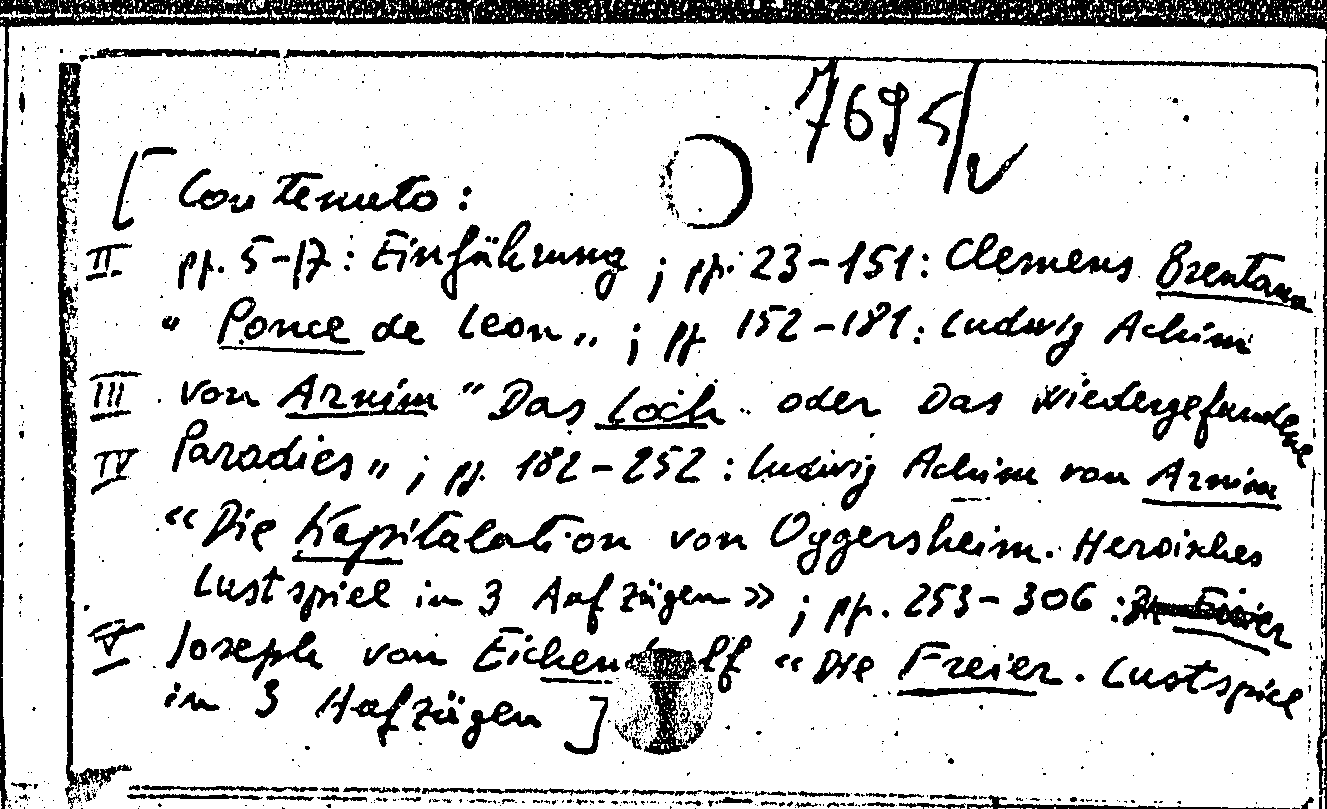 7695/V
[ Contenuto:
II pp. 5-17: Einführung ; pp. 23-151: Clemens Brentano
" Ponce de Leon " ; pp 152-181: Ludwig Achim
III von Arnim " Das Loch " oder Das wiedergefundene
IV Paradies " ; pp. 182-252 : Ludwig Achim von Arnim
« Die Kapitulation von Oggersheim. Heroisches
Lustspiel in 3 Aufzügen » ; pp. 253-306 :
V Joseph von Eichendorff « Die Freier. Lustspiel
in 3 Aufzügen ]